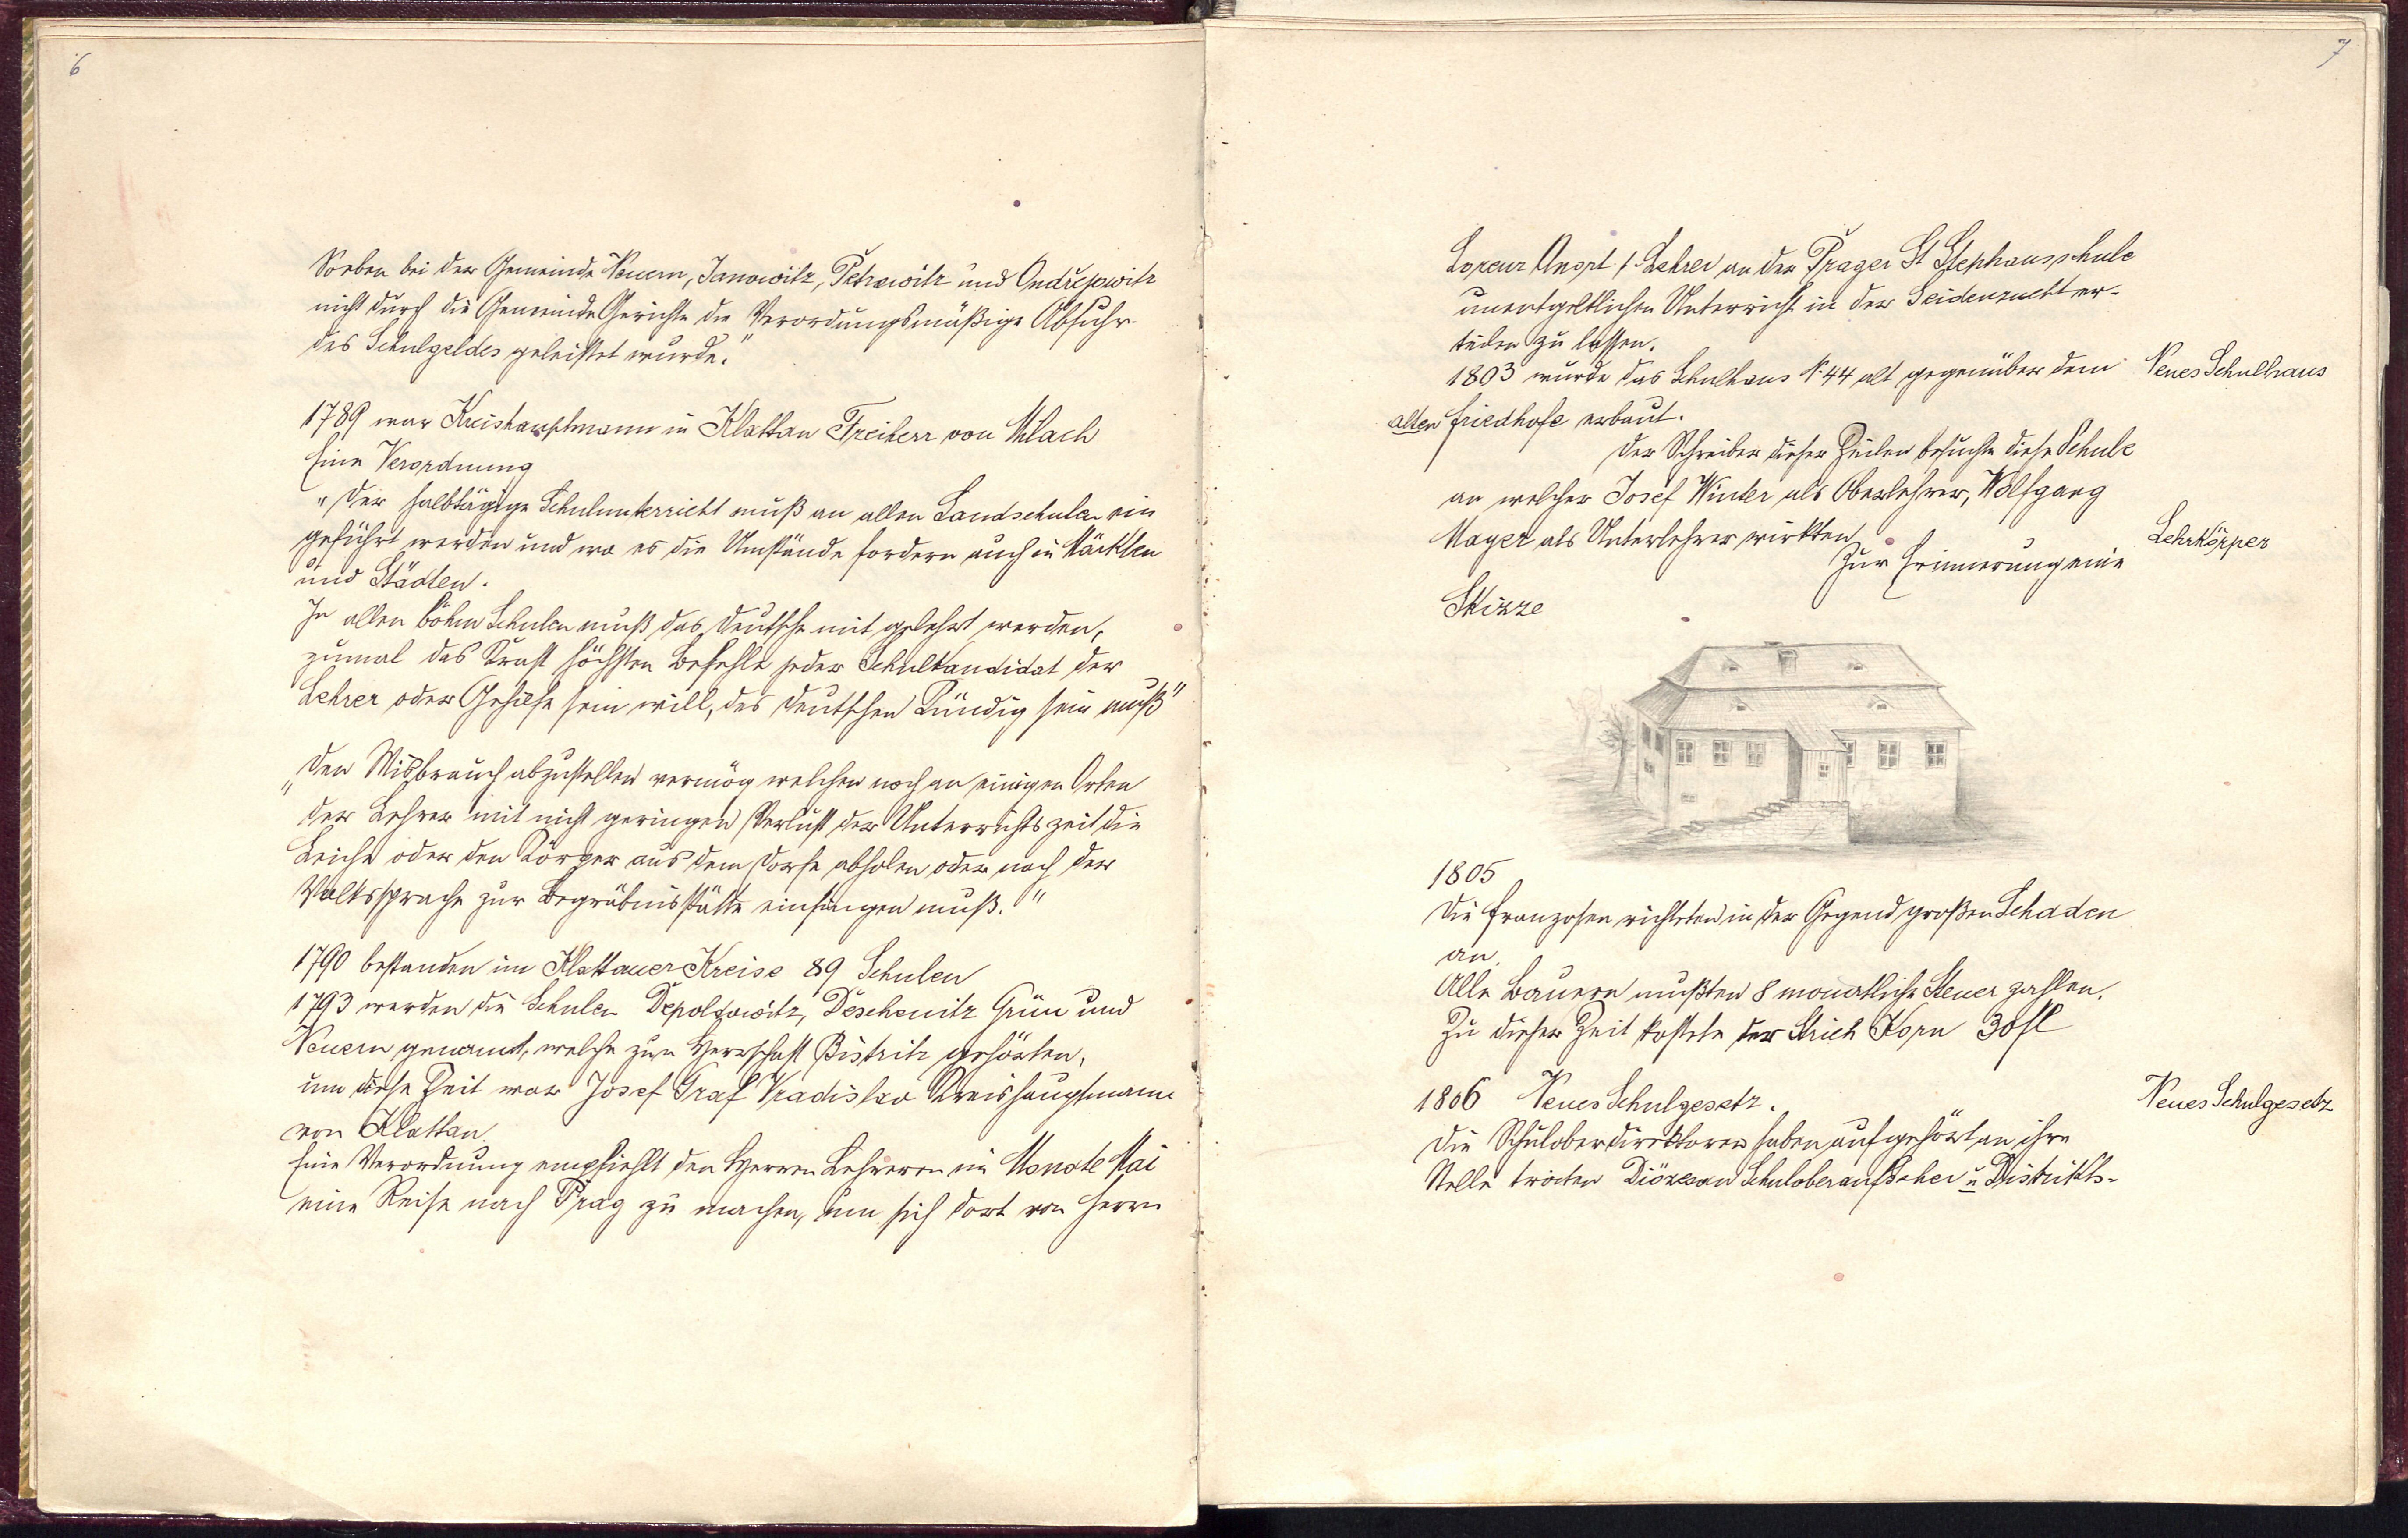 6
Soeben bei der Gemeinde Neuern, Janowitz, Petrowitz und Ondřejowitz
nicht durch die Gemeinde Gerichte die Verordungsmäßige Abfuhr
des Schulgeldes geleistet wurde."
1789 war Kreishauptmann in Klattau Freiherr von
Eine Verordnung
"Der halbtägige Schulunterricht muß an allen Landschulen ein
geführt werden und wo es die Umstände fordern auch in Märkten
und Städten.
In allen böhm Schulen muß das Deutsche mit gelehrt werden,
zumal das Kraft höchsten Befehls jeder Schulkandidat der
Lehrer oder Gehilfe sein will, des deutschen Kündig sein muß"
"Den Misbrauch abzustellen vermög welchen noch an einigen Orten
der Lehrer mit nicht geringen Verlust der Unterrichtszeit die
Leiche oder den Körper aus dem Dorfe abholen oder nach der
Volkssprache zur Begräbnisstätte einsingen muß."
1790 bestanden im Klattauer Kreise 89 Schulen
1793 werden die Schulen Depoltowitz, Deschenitz Grün und
Neuern genannt, welche zur Herrschaft Bistritz gehörten,
um diese Zeit war Josef Graf Vradislav Kreishauptmann
von Klattau.
Eine Verordnung empfiehlt den Herren Lehrern im Monate Mai
eine Reise nach Prag zu machen, um sich dort von Herrn
7
1 Lehrer an der Prager St Stephansschule
unentgeltlichen Unterricht in der Seidenzucht er-
teilen zu lassen.
1803 wurde das Schulhaus N 44 alt gegenüber dem Neues Schulhaus
alten Friedhofe erbaut.
Der Schreiber dieser Zeilen besuchte diese Schule
an welcher Josef Winter als Oberlehrer, Wolfgang
Mayer als Unterlehrer wirkten Lehrkörper
Zur Erinnerung eine
Skizze
1805
Die Franzosen richteten in der Gegend großen Schaden
an.
Alle Bauern mußten 8 monatliche Steuer zahlen.
Zu dieser Zeit kostete der Strich Korn 30 fl
1806 Neues Schulgesetz. Neues Schulgesetz
Die Schuloberdirektoren haben aufgehört an ihre
Stelle traten Diözesan Schuloberaufseher u Distrikts-